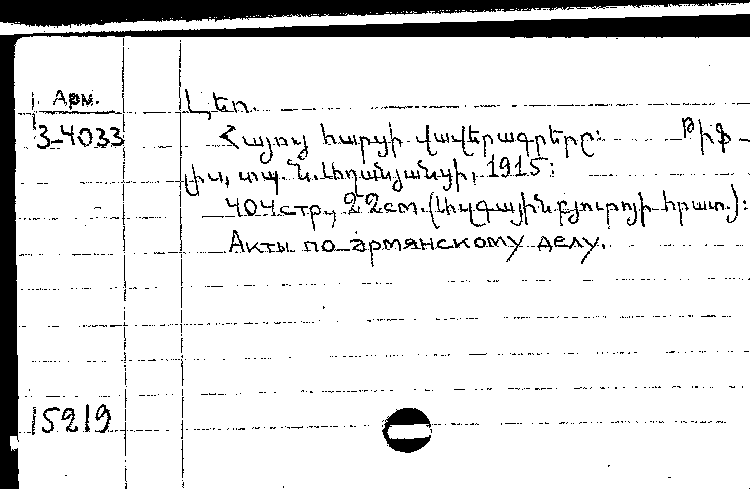 Арм.
Լեո.
3-4033
Հայոց հարցի վավերագրերը: Թիֆ-
լիս, տպ. Ն. Աղանյանցի, 1915:
404 стр., 22 см. (Ազգային բյուրոյի հրատ.):
Акты по армянскому делу.
15219